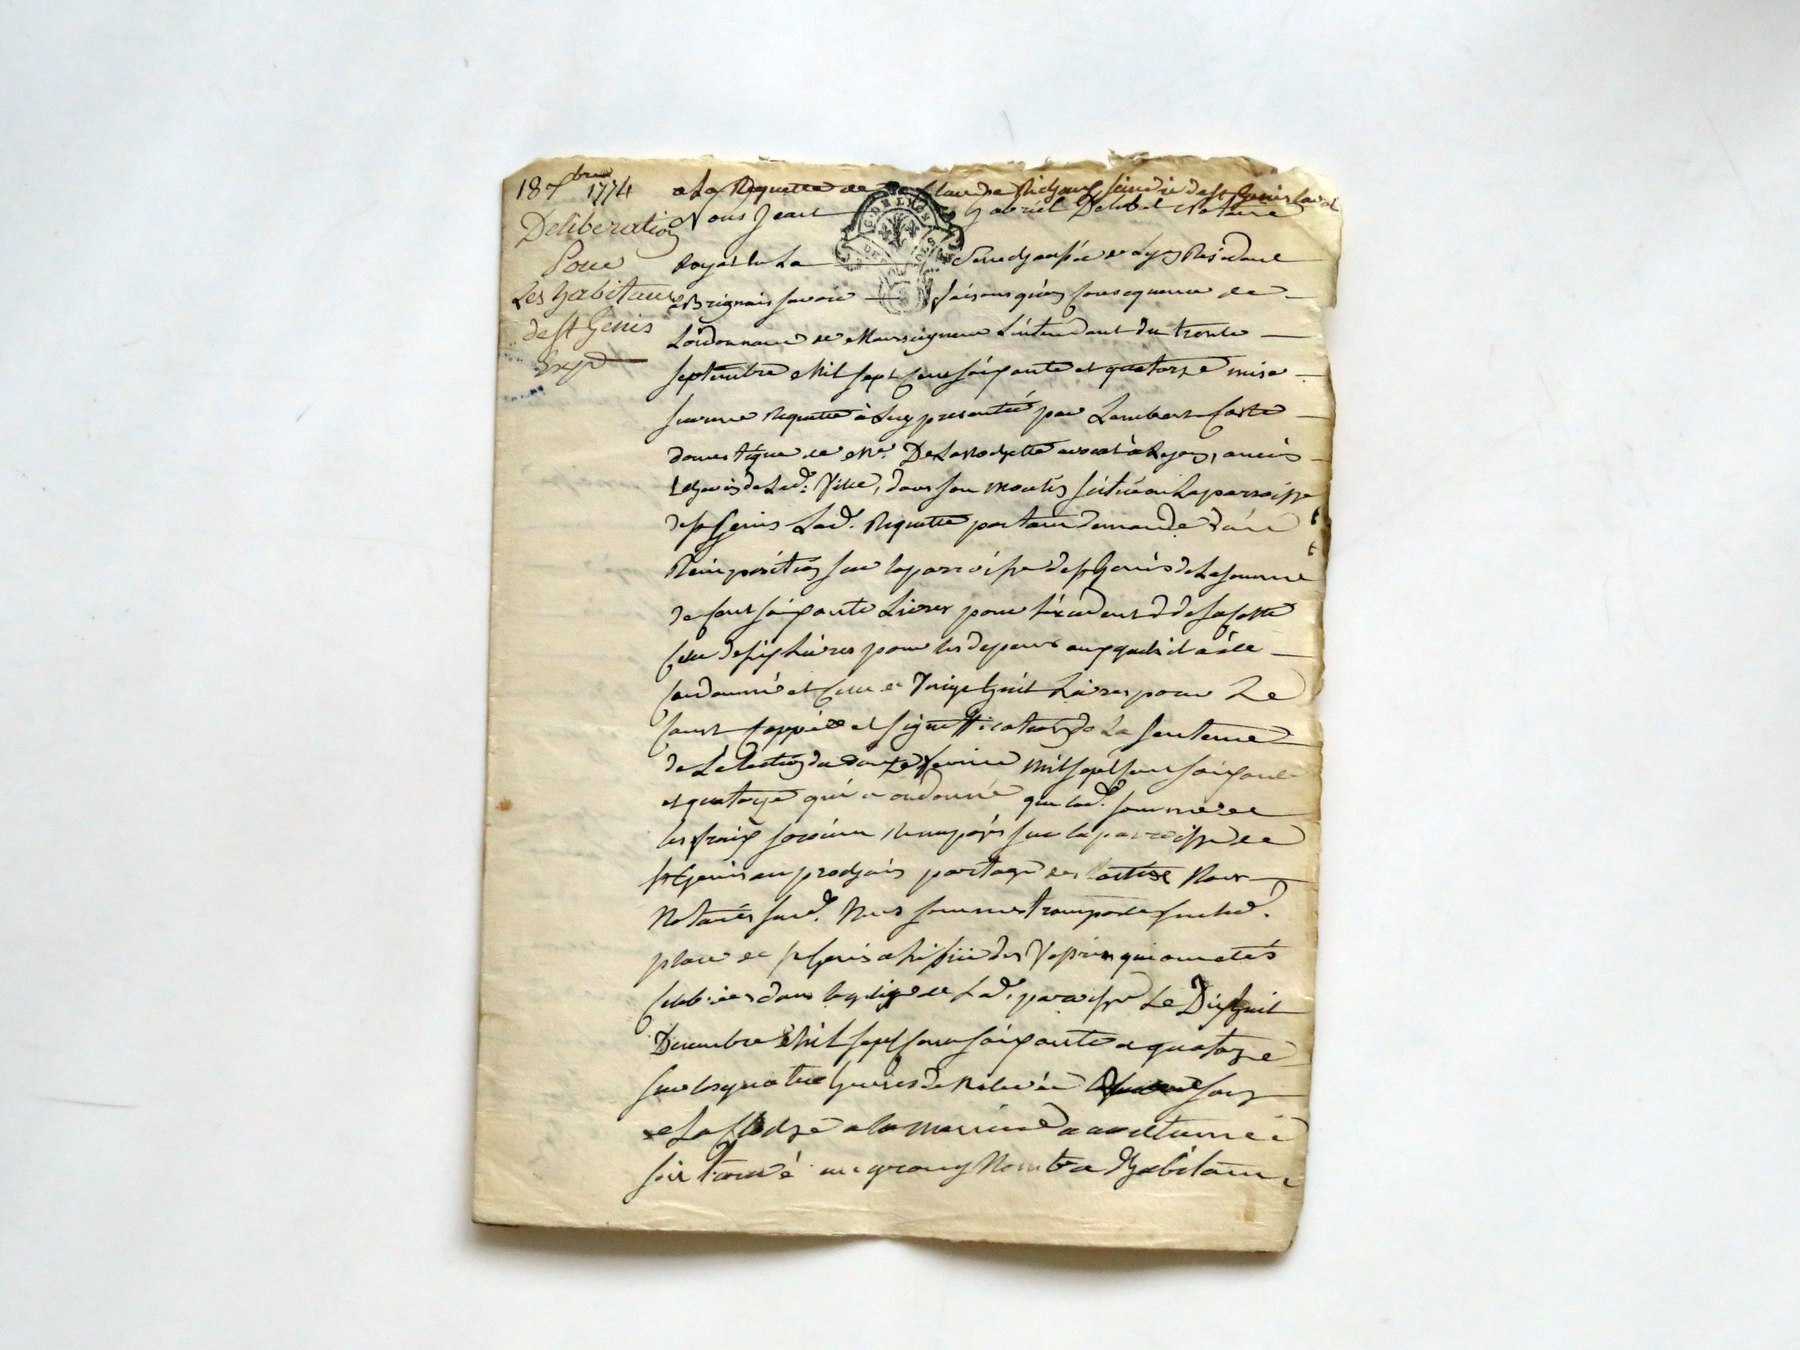 18 7bre 1774
Deliberation
Pour
Les habitans
de st Genis
Exp
a La Requette de Claude sindic de st Genis Laval
Nous Jean Gabriel Delibel Notaire
Royal en La Senechaussée de Lyon Residant
a Brignais savoir faisons qu'en consequence de
L'ordonnance de Monseigneur L'intendant du trente
septembre Mil sept cent soixante et quatorze mise
sur une Requette à Luy presentée par Lambert
domestique de Me. De LaRochette avocat à Lyon, ancien
Echevin de Lad. Ville, dans son scitué en La paroisse
de st Genis Lad. Requette portant demande d'une
Reimposition sur la parroisse de st Genis de La somme
de cent soixante Livres pour L'excedent de sa Cotte
Celle de six Livres pour les depens auxquels il a été
condamné et celle de huit Livres pour Le
Coust et signiffication de La sentence
de L'election du douze fevrier Mil sept cent soixante
et quatorze qui a ordonné que lad. somme et
les fraix seroient Reimposés sur la parroisse de
st Genis au prochain partage des Nous
Notaire sud. Nous sommes transporté sur lad.
place de st Genis a L'issüe des Vespres qui ont etés
Celebrées dans L'eglise de Lad. parroisse Le Dixhuit
Decembre Mil sept cent soixante et quatorze
sur les quatre heures de Relevée
La Cloche a la maniere accoutumée
s'est trouvé un grand Nombre d'habitans